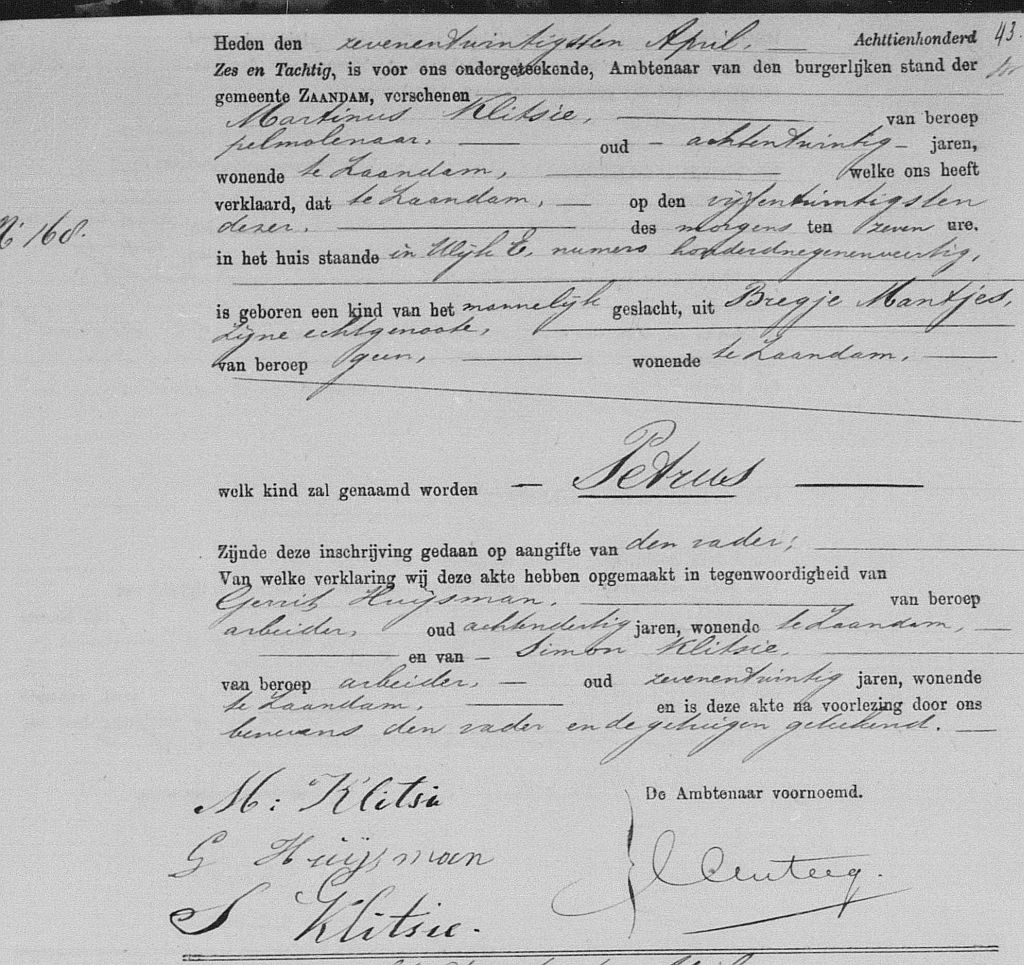 43.
Heden den zevenentwintigsten April, Achttienhonderd
Zes en Tachtig, is voor ons ondergeteekende, Ambtenaar van den burgerlijken stand der
gemeente ZAANDAM, verschenen
Martinus Klitsie, van beroep
pelmolenaar, oud achtentwintig jaren,
wonende te Zaandam, welke ons heeft
verklaard, dat te Zaandam, op den vijfentwintigsten
dezer, des morgens ten zeven ure,
N° 168.
in het huis staande in Wijk E, numero honderdnegenenveertig,
is geboren een kind van het mannelijk geslacht, uit Bregje Mantjes,
zijne echtgenoote,
van beroep geen, wonende te Zaandam,
welk kind zal genaamd worden Petrus
Zijnde deze inschrijving gedaan op aangifte van den vader;
Van welke verklaring wij deze akte hebben opgemaakt in tegenwoordigheid van
Gerrit Huijsman, van beroep
arbeider, oud achtendertig jaren, wonende te Zaandam,
en van Simon Klitsie,
van beroep arbeider, oud zevenentwintig jaren, wonende
te Zaandam, en is deze akte na voorlezing door ons
benevens den vader en de getuigen geteekend.
M: Klitsie
De Ambtenaar voornoemd.
G Huijsman
S Klitsie.